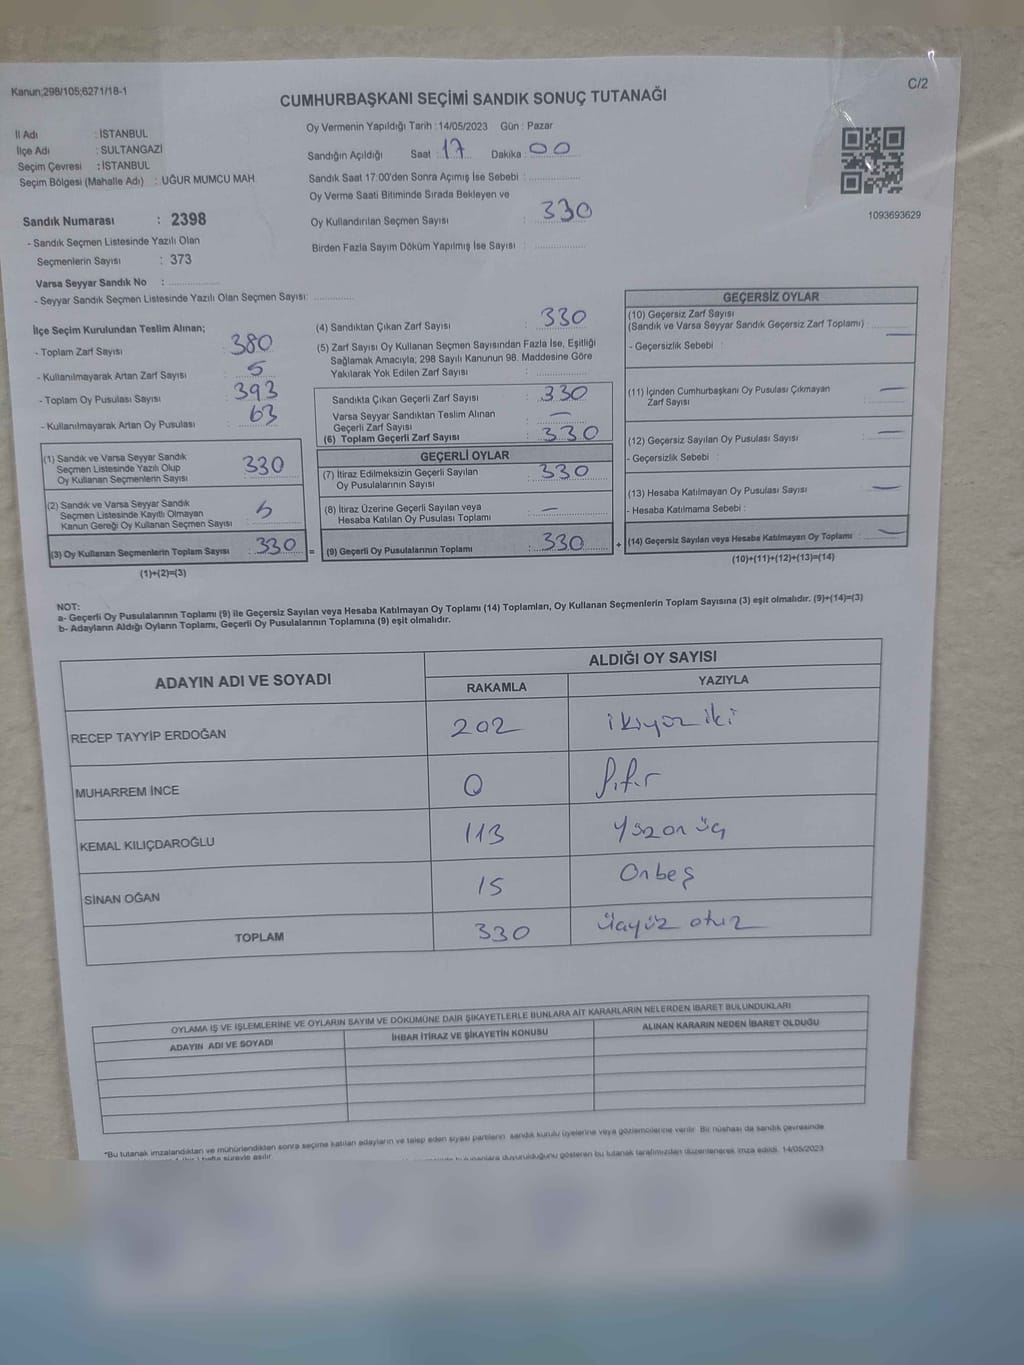 Kanun;298/105;6271/18-1
C/2
CUMHURBAŞKANI SEÇİMİ SANDIK SONUÇ TUTANAĞI
İl Adı : İSTANBUL
İlçe Adı : SULTANGAZİ
Seçim Çevresi : İSTANBUL
Seçim Bölgesi (Mahalle Adı) : UĞUR MUMCU MAH
Sandık Numarası : 2398
- Sandık Seçmen Listesinde Yazılı Olan
Seçmenlerin Sayısı : 373
Varsa Seyyar Sandık No :
- Seyyar Sandık Seçmen Listesinde Yazılı Olan Seçmen Sayısı:
Oy Vermenin Yapıldığı Tarih : 14/05/2023 Gün : Pazar
Sandığın Açıldığı Saat : 17 Dakika : 00
Sandık Saat 17:00'den Sonra Açımış İse Sebebi :
Oy Verme Saati Bitiminde Sırada Bekleyen ve
Oy Kullandırılan Seçmen Sayısı : 330
Birden Fazla Sayım Döküm Yapılmış İse Sayısı :
1093693629
İlçe Seçim Kurulundan Teslim Alınan;
- Toplam Zarf Sayısı : 380
- Kullanılmayarak Artan Zarf Sayısı : 5
- Toplam Oy Pusulası Sayısı : 393
- Kullanılmayarak Artan Oy Pusulası : 63
(1) Sandık ve Varsa Seyyar Sandık
Seçmen Listesinde Yazılı Olup
Oy Kullanan Seçmenlerin Sayısı : 330
(2) Sandık ve Varsa Seyyar Sandık
Seçmen Listesinde Kayıtlı Olmayan
Kanun Gereği Oy Kullanan Seçmen Sayısı : 5
(3) Oy Kullanan Seçmenlerin Toplam Sayısı : 330 =
(1)+(2)=(3)
(4) Sandıktan Çıkan Zarf Sayısı : 330
(5) Zarf Sayısı Oy Kullanan Seçmen Sayısından Fazla İse, Eşitliği
Sağlamak Amacıyla; 298 Sayılı Kanunun 98. Maddesine Göre
Yakılarak Yok Edilen Zarf Sayısı :
Sandıkta Çıkan Geçerli Zarf Sayısı : 330
Varsa Seyyar Sandıktan Teslim Alınan
Geçerli Zarf Sayısı : —
(6) Toplam Geçerli Zarf Sayısı : 330
GEÇERLİ OYLAR
(7) İtiraz Edilmeksizin Geçerli Sayılan
Oy Pusulalarının Sayısı : 330
(8) İtiraz Üzerine Geçerli Sayılan veya
Hesaba Katılan Oy Pusulası Toplamı : —
(9) Geçerli Oy Pusulalarının Toplamı : 330 +
GEÇERSİZ OYLAR
(10) Geçersiz Zarf Sayısı
(Sandık ve Varsa Seyyar Sandık Geçersiz Zarf Toplamı) : —
- Geçersizlik Sebebi :
(11) İçinden Cumhurbaşkanı Oy Pusulası Çıkmayan
Zarf Sayısı : —
(12) Geçersiz Sayılan Oy Pusulası Sayısı : —
- Geçersizlik Sebebi :
(13) Hesaba Katılmayan Oy Pusulası Sayısı : —
- Hesaba Katılmama Sebebi :
(14) Geçersiz Sayılan veya Hesaba Katılmayan Oy Toplamı : —
(10)+(11)+(12)+(13)=(14)
NOT:
a- Geçerli Oy Pusulalarının Toplamı (9) ile Geçersiz Sayılan veya Hesaba Katılmayan Oy Toplamı (14) Toplamları, Oy Kullanan Seçmenlerin Toplam Sayısına (3) eşit olmalıdır. (9)+(14)=(3)
b- Adayların Aldığı Oyların Toplamı, Geçerli Oy Pusulalarının Toplamına (9) eşit olmalıdır.
ADAYIN ADI VE SOYADI ALDIĞI OY SAYISI
RAKAMLA YAZIYLA
RECEP TAYYİP ERDOĞAN 202 ikiyüz iki
MUHARREM İNCE 0 sıfır
KEMAL KILIÇDAROĞLU 113 Yüzonüç
SİNAN OĞAN 15 Onbeş
TOPLAM 330 üçyüz otuz
OYLAMA İŞ VE İŞLEMLERİNE VE OYLARIN SAYIM VE DÖKÜMÜNE DAİR ŞİKAYETLERLE BUNLARA AİT KARARLARIN NELERDEN İBARET BULUNDUKLARI
ADAYIN ADI VE SOYADI İHBAR İTİRAZ VE ŞİKAYETİN KONUSU ALINAN KARARIN NEDEN İBARET OLDUĞU
*Bu tutanak imzalandıktan ve mühürlendikten sonra seçime katılan adayların ve talep eden siyasi partilerin sandık kurulu üyelerine veya gözlemcilerine verilir. Bir nüshası da sandık çevresinde
hafta süreyle asılır. bulunanlara duyurulduğunu gösteren bu tutanak tarafımızdan düzenlenerek imza edildi. 14/05/2023